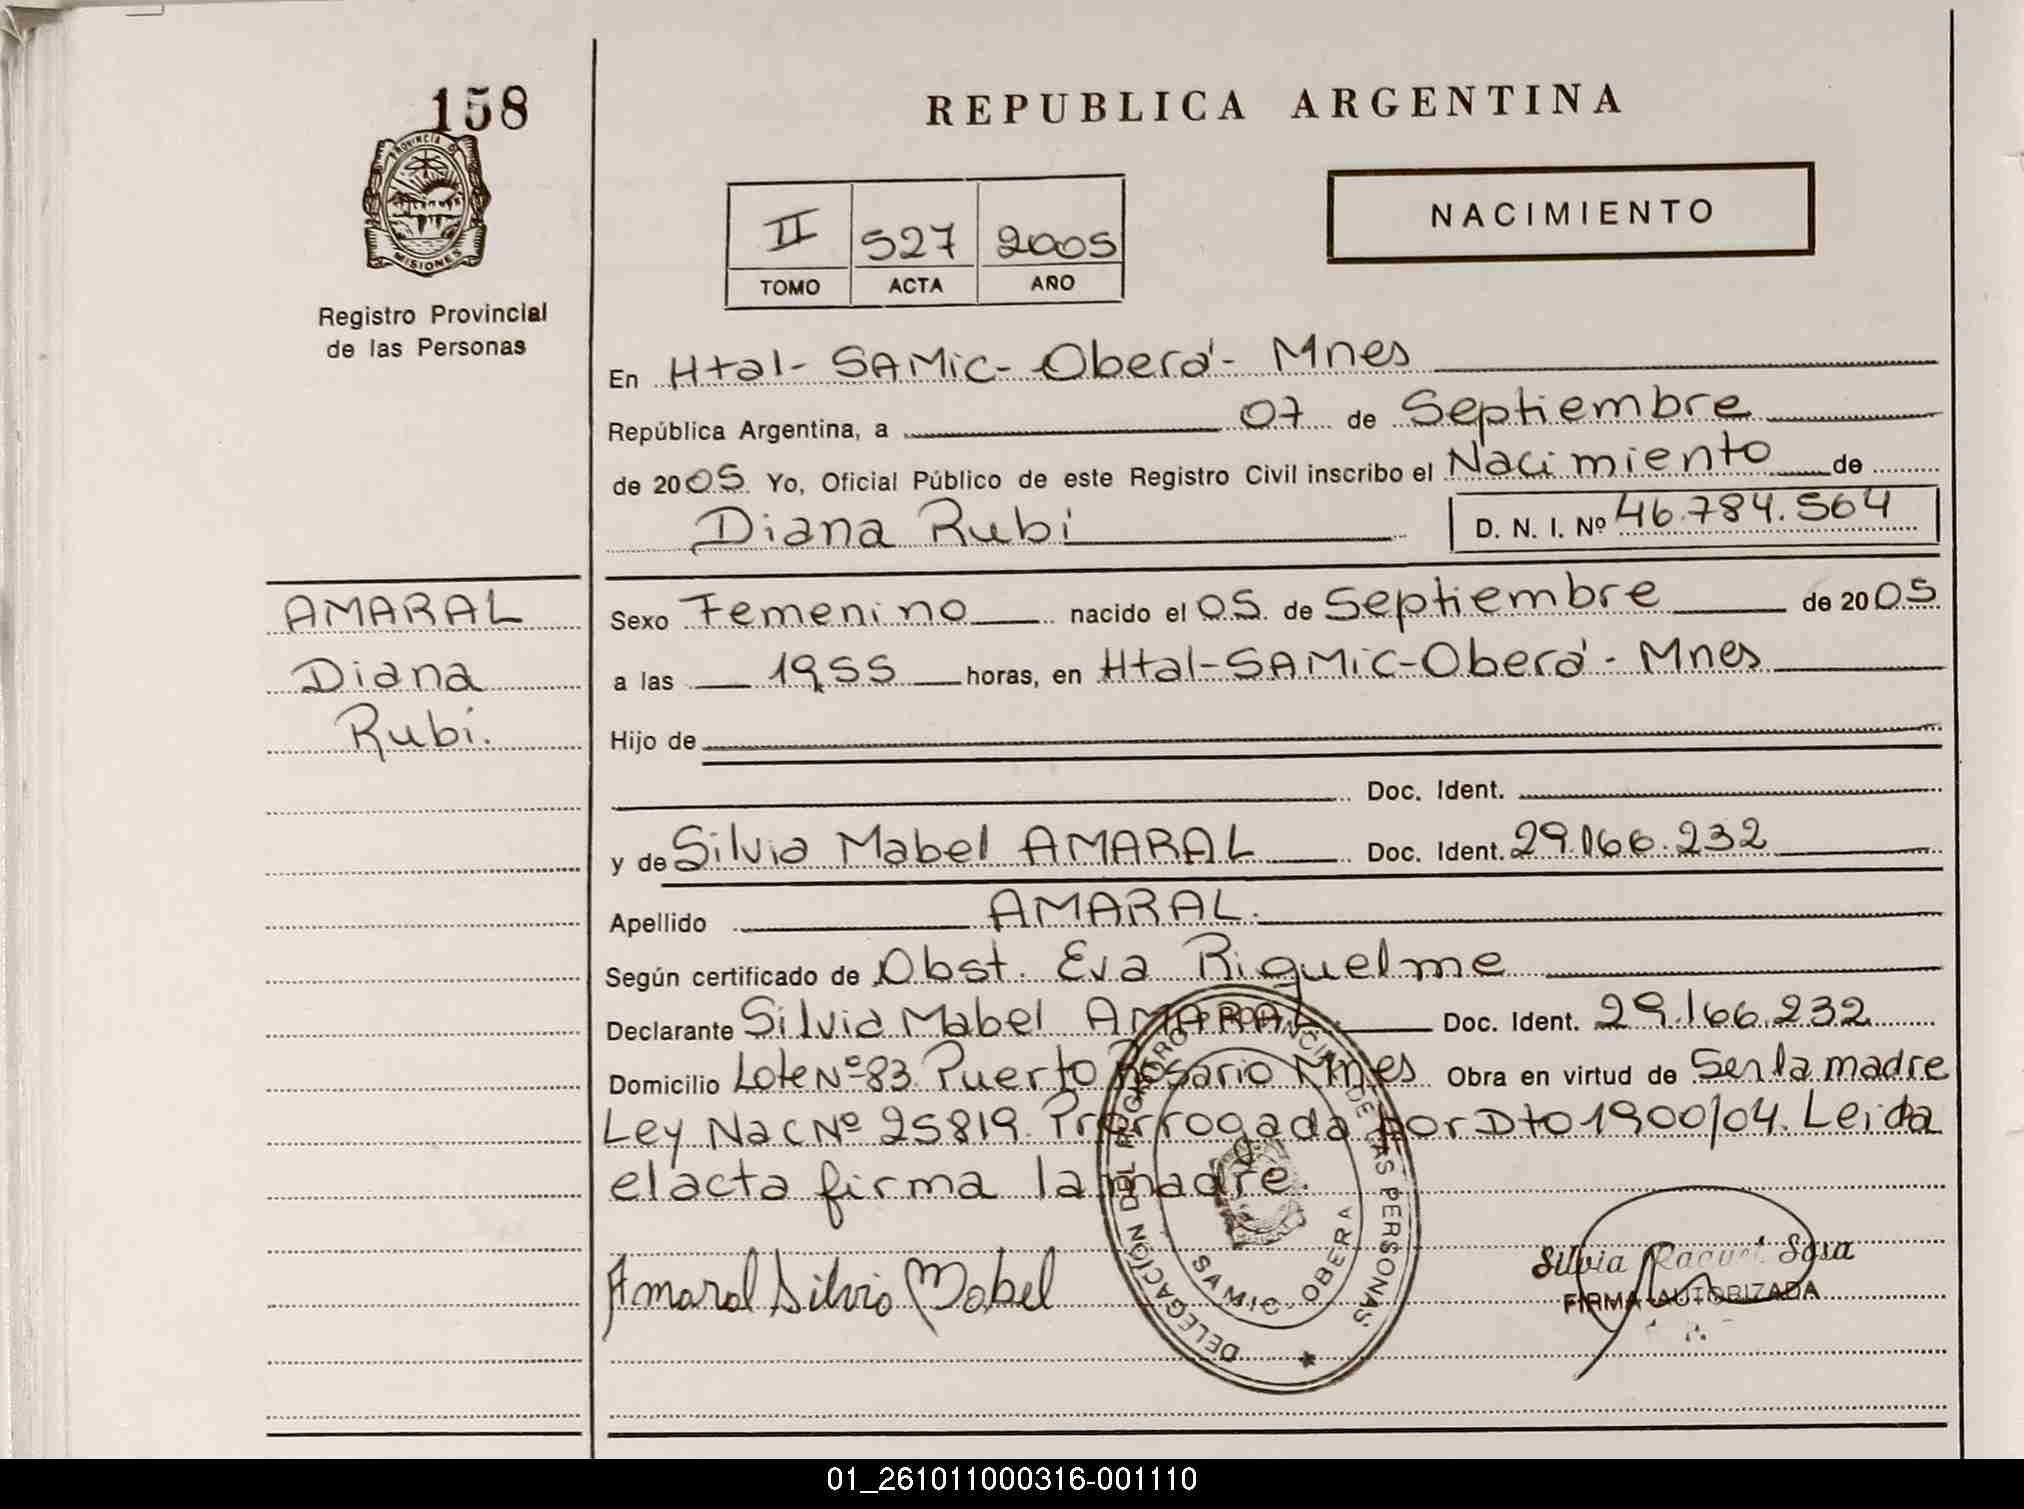 158
PROVINCIA D
MISIONES
Registro Provincial
de las Personas
REPUBLICA ARGENTINA
II 527 2005
TOMO ACTA AÑO
NACIMIENTO
En Htal-SAMiC-Oberá-Mnes
República Argentina, a 07 de Septiembre
de 2005 Yo, Oficial Público de este Registro Civil inscribo el Nacimiento de
Diana Rubi D. N. I. Nº 46.784.564
AMARAL
Diana
Rubi.
Sexo Femenino nacido el 05 de Septiembre de 2005
a las 19,55 horas, en Htal-SAMiC-Oberá-Mnes
Hijo de
Doc. Ident.
y de Silvia Mabel AMARAL Doc. Ident. 29.166.232
Apellido AMARAL.
Según certificado de Obst. Eva Riquelme
Declarante Silvia Mabel AMARAL. Doc. Ident. 29.166.232
Domicilio Lote Nº 83 Puerto Rosario Mnes Obra en virtud de Ser la madre
Ley Nac Nº 25819. Prorrogada por Dto 1900/04. Leida
el acta firma la madre.
Amaral Silvia Mabel
DELEGACIÓN DEL REGISTRO PROVINCIAL DE LAS PERSONAS
SAMIC OBERA
Silvia Raquel Sosa
FIRMA AUTORIZADA
01_261011000316-001110